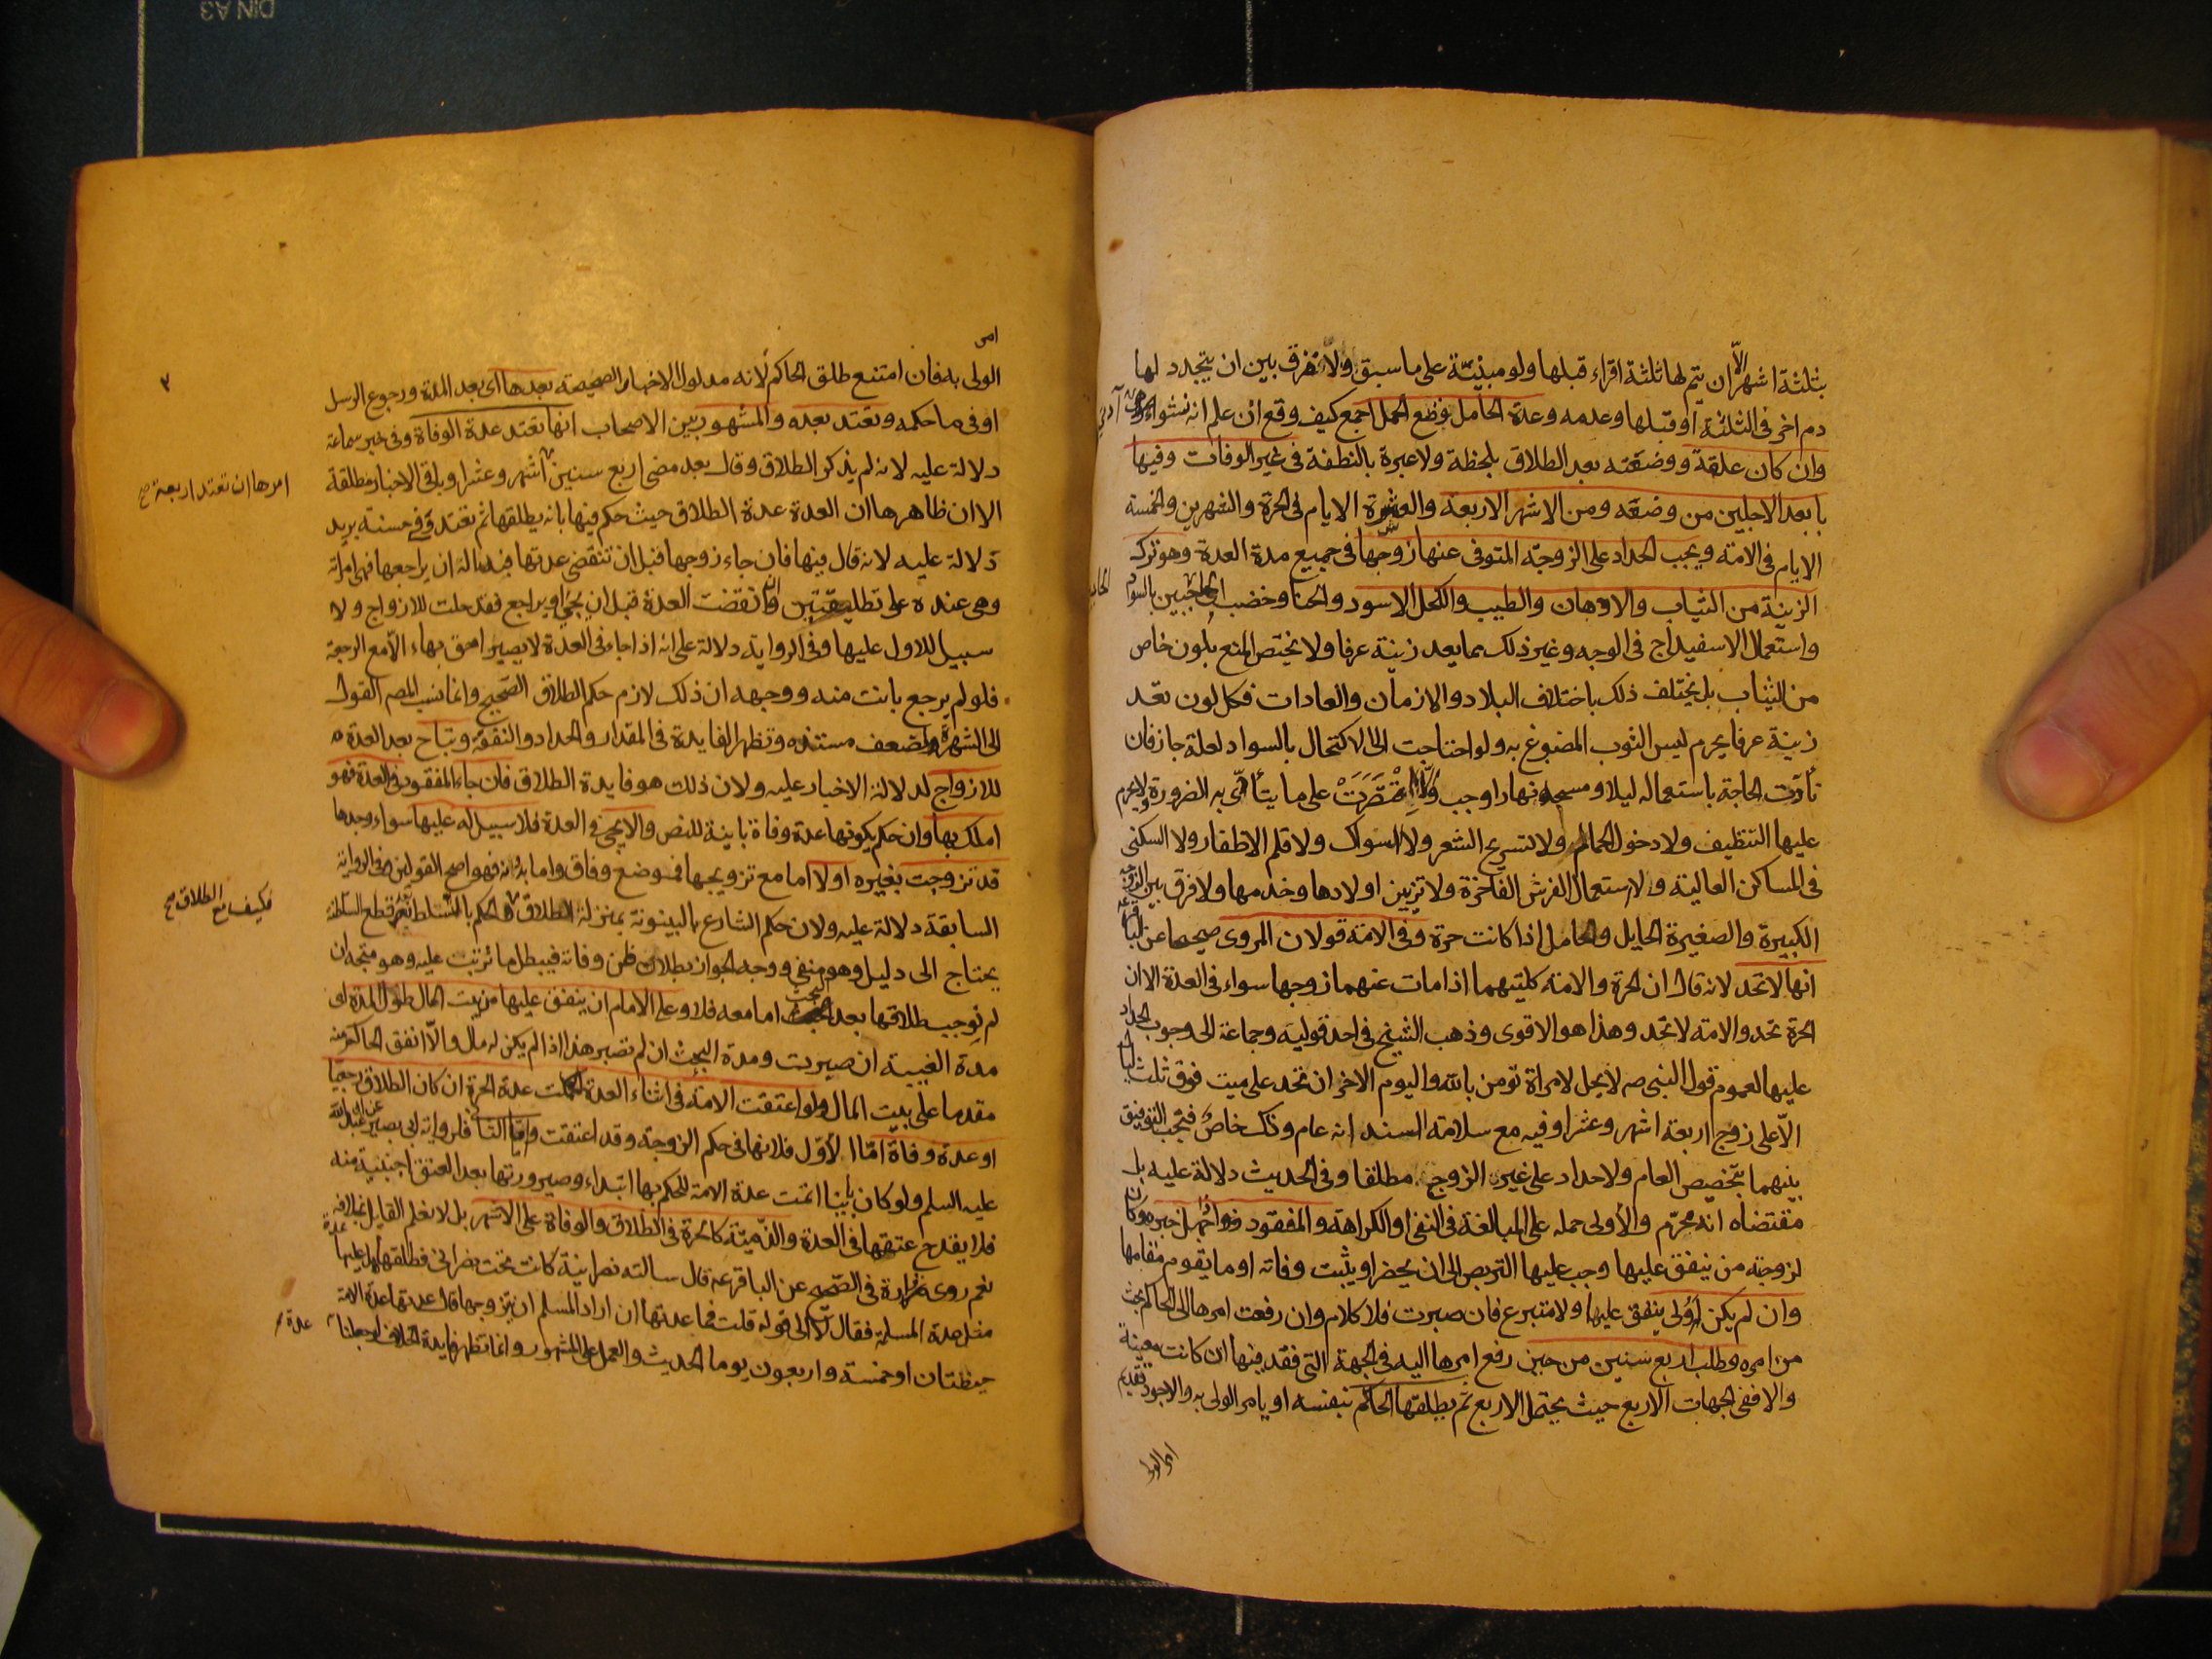 بثلثة اشهر الا ان يتم لها ثلثة اقراء قبلها ولو مبنيّة على ما سبق ولا فرق بين ان يتجدد لها
دم اخر فى الثلثة او قبلها وعدمه وعدة الحامل بوضع الحمل اجمع كيف وقع اذا علم انه نشوء آدمي
وان كان علقة ووضعته بعد الطلاق بلحظة ولا عبرة بالنطفة فى غير الوفات وفيها
بابعد الاجلين من وضعه ومن الاشهر الاربعة والعشرة الايام فى الحرة والشهرين والخمسة
الايام فى الامة ويجب الحداد على الزوجة المتوفى عنها زوجها فى جميع مدة العدة وهو ترك
الزينة من الثياب والادهان والطيب والكحل الاسود والحنا وخضب الحاجبين بالسواد
واستعمال الاسفيداج فى الوجه وغير ذلك مما يعد زينة عرفا ولا يختص المنع بلون خاص
من الثياب بل يختلف ذلك باختلاف البلاد والازمان والعادات فكل لون تعد
زينة عرفا يحرم لبس الثوب المصبوغ به ولو احتاجت الى الاكتحال بالسواد لعلة جاز فان
تأدت الحاجة باستعماله ليلا ومسحه نهارا وجب والا اقتصرت على ما يتأدّى به الضرورة ولا يحرم
عليها التنظيف ولا دخول الحمام ولا تسريح الشعر ولا السواك ولا قلم الاظفار ولا السكنى
فى المساكن العالية ولا استعمال الفرش الفاخرة ولا تزيين اولادها وخدمها ولا فرق بين الزوجة
الكبيرة والصغيرة الحايل والحامل اذا كانت حرة وفى الامة قولان المروى صحيحا عن الباقر
انها لا تحد لانه قال ان الحرة والامة كلتيهما اذا مات عنهما زوجها سواء فى العدة الا ان
الحرة تحد والامة لا تحد وهذا هو الاقوى وذهب الشيخ فى احد قوليه وجماعة الى وجوب الحداد
عليها لعموم قول النبى ص لا يحل لامراة تومن بالله واليوم الاخر ان تحد على ميت فوق ثلث ليال
الّا على زوج اربعة اشهر وعشرا وفيه مع سلامة السند انه عام وذلك خاص فيجب التوفيق
بينهما بتخصيص العام ولا حداد على غير الزوج مطلقا وفى الحديث دلالة عليه بل
مقتضاه انه محرّم والأولى حمله على المبالغة فى النفى او الكراهة والمفقود اذا جهل خبره وكان
لزوجته من ينفق عليها وجب عليها التربص الى ان يحضر او يثبت وفاته او ما يقوم مقامها
وان لم يكن له ولى ينفق عليها ولا متبرع فان صبرت فلا كلام وان رفعت امرها الى الحاكم بحث
من امره وطلب اربع سنين من حين رفع امرها اليه فى الجهة التى فقد فيها ان كانت معينة
والا ففى الجهات الاربع حيث يحتمل الاربع ثم يطلقها الحاكم بنفسه او يامر الولى به والاجود تقديم
امر الولى
امر
الولى به فان امتنع طلق الحاكم لانه مدلول الاخبار الصحيحة بعدها اى بعد المدة ورجوع الرسل
او فى ما حكمه وتعتد بعده والمشهور بين الاصحاب انها تعتد عدة الوفاة وفى خبر سماعة
دلالة عليه لانه لم يذكر الطلاق وقال بعد مضى اربع سنين اشهر وعشرا وباقى الاخبار مطلقة
امرها ان تعتد اربعة صح
الا ان ظاهرها ان العدة عدة الطلاق حيث حكم فيها بانه يطلقها ثم تعتد وفى حسنة بريد
دلالة عليه لانه قال فيها فان جاء زوجها قبل ان تنقضى عدتها فبدا له ان يراجعها فهى امراته
وهى عنده على تطليقتين وان انقضت العدة قبل ان يجئ او يراجع فقد حلت للازواج ولا
سبيل للاول عليها وفى الرواية دلالة على انه اذا جاء فى العدة لا يصير احق بها الّا مع الرجعة
فلو لم يرجع بانت منه ووجهه ان ذلك لازم حكم الطلاق الصحيح وانما نسب المصر القول
الى الشهرة لضعف مستنده وتظهر الفايدة فى المقدار والحداد والنفقة وتباح بعد العدة
للازواج لدلالة الاخبار عليه ولان ذلك هو فايدة الطلاق فان جاء المفقود فى العدة فهو
املك بها وان حكم بكونها عدة وفاة باينة للنص والا يجئ فى العدة فلا سبيل له عليها سواء وجدها
قد تزوجت بغيره او لا اما مع تزويجها فموضع وفاق واما بدونه فهو اصح القولين وفى الرواية
السابقة دلالة عليه ولان حكم الشارع بالبينونة بمنزلة الطلاق والحكم بالتسلط بعد قطع السلطنة
فكيف مع الطلاق صح
يحتاج الى دليل وهو منفى ووجه الجواز بطلان ظن وفاته فيبطل ما ترتب عليه وهو متجه ان
لم نوجب طلاقها بعد البحث اما معه فلا وعلى الامام ان ينفق عليها من بيت المال طول المدة اى
مدة الغيبة ان صبرت ومدة البحث ان لم تصبر هذا اذا لم يكن له مال والّا انفق الحاكم منه
مقدما على بيت المال ولو اعتقت الامة فى اثناء العدة اكملت عدة الحرة ان كان الطلاق رجعيا
او عدة وفاة امّا الأوّل فلانها فى حكم الزوجة وقد اعتقت وامّا الثانى فلرواية ابى بصير عن ابى عبد الله
عليه السلم ولو كان باينا اتمت عدة الامة للحكم بها ابتداء وصيرورتها بعد العتق اجنبية منه
فلا يقدح عتقها فى العدة والذّميّة كالحرة فى الطلاق والوفاة على الاشهر بل لا نعلم القايل بخلافه
نعم روى زرارة فى الصحيح عن الباقر عه قال سالته نصرانية كانت تحت نصرانى فطلقها هل عليها عدة
مثل عدة المسلمة فقال لا الى قوله قلت فما عدتها ان اراد المسلم ان يتزوجها قال عدتها عدة الامة
حيضتان او خمسة واربعون يوما الحديث والعمل على المشهور وانما تظهر فايدة الخلاف لو جعلنا
عدة